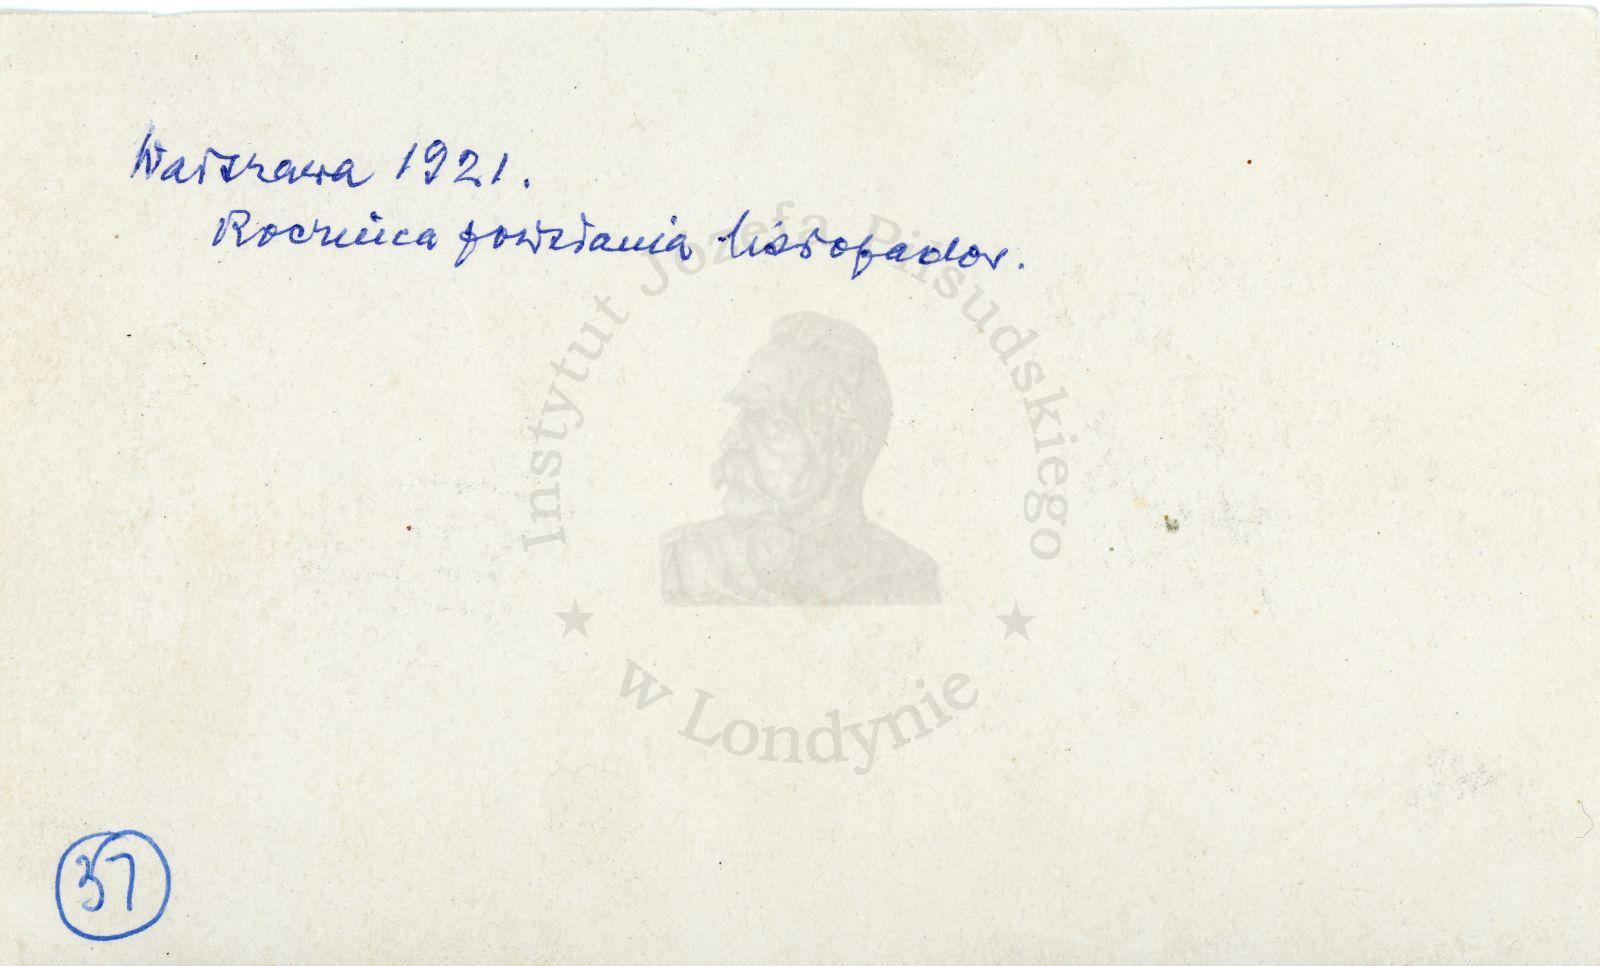 Warszawa 1921.
Rocznica powstania listopadow.
Instytut Józefa Piłsudskiego
w Londynie
37